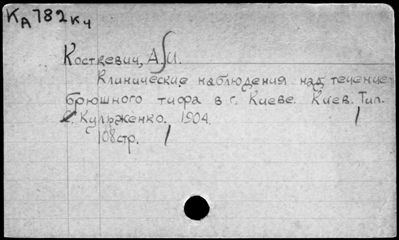 КА782 Кч
Косткевич, А. И.
Клинические наблюдения над течение
брюшного тифа в г. Киеве. Киев. Тип.
С. Кульженко. 1904.
108стр.